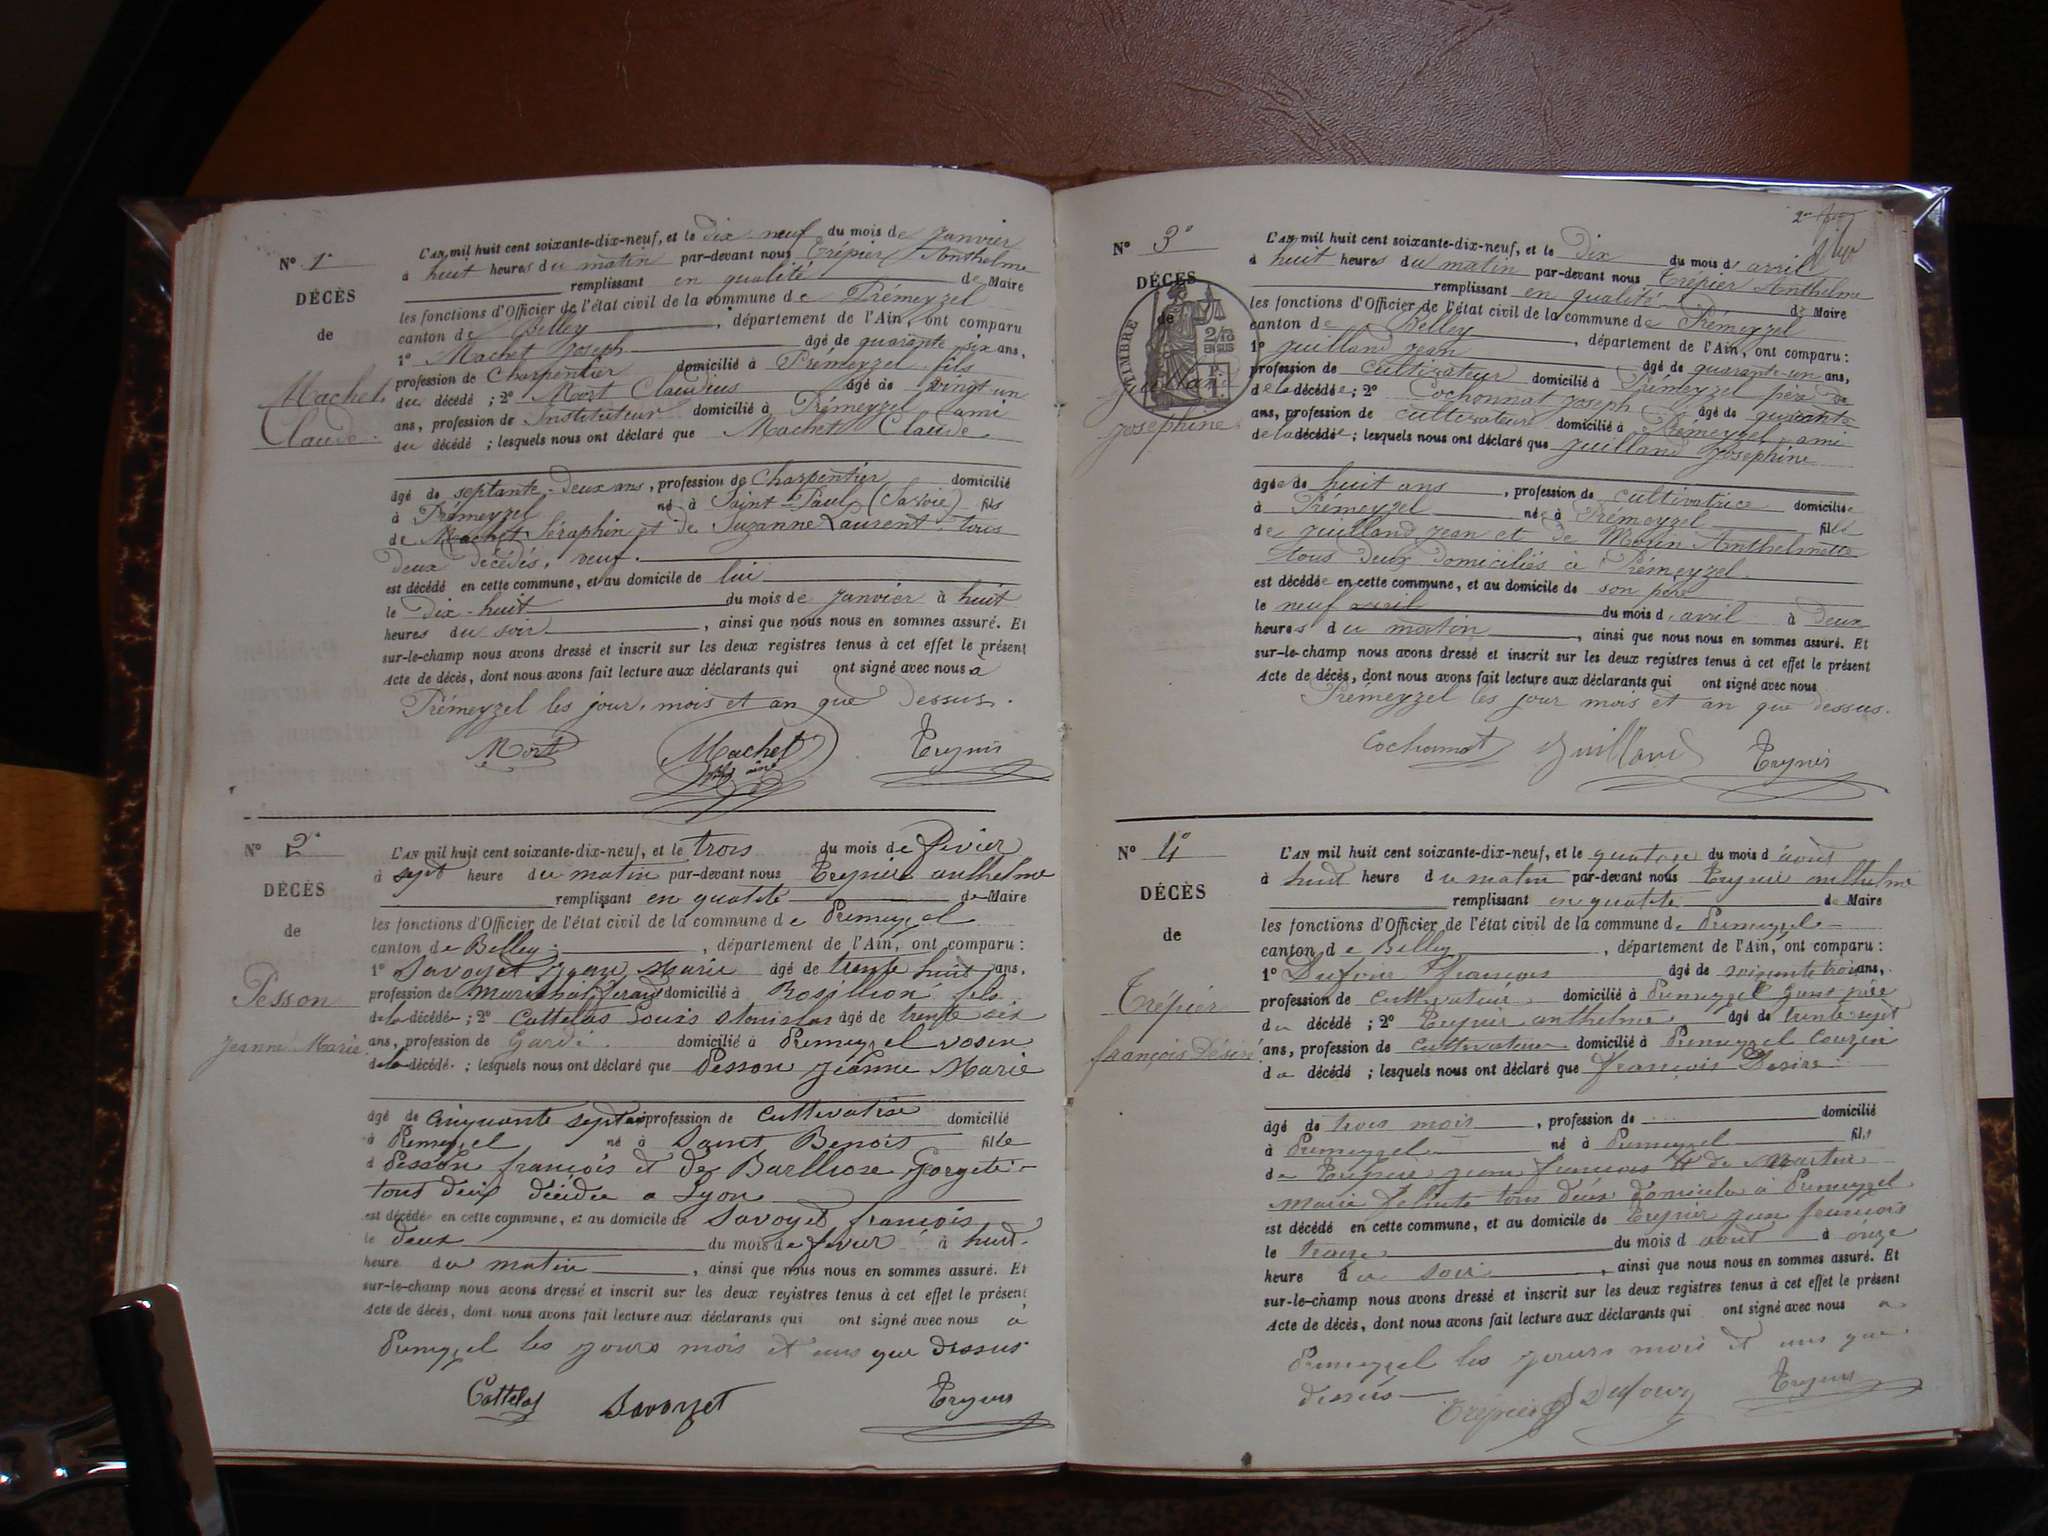 N° 1°
DÉCÈS
de
Machet
Claude
L'AN mil huit cent soixante-dix-neuf, et le dix-neuf du mois de janvier
à huit heures du matin par-devant nous Trépier Anthelme
remplissant en qualité de Maire
les fonctions d'Officier de l'état civil de la commune de Prémeyzel
canton de Belley, département de l'Ain, ont comparu
1° Machet Joseph âgé de quarante-six ans,
profession de Charpentier domicilié à Prémeyzel fils
du décédé ; 2° Mort Claudius âgé de vingt-un
ans, profession de Instituteur domicilié à Prémeyzel ami
du décédé ; lesquels nous ont déclaré que Machet Claude
âgé de septante-deux ans, profession de Charpentier domicilié
à Prémeyzel né à Saint-Paul (Savoie) fils
de Machet Séraphin et de Suzanne Laurent tous
deux décédés, veuf.
est décédé en cette commune, et au domicile de lui
le dix-huit du mois de janvier à huit
heures du soir, ainsi que nous nous en sommes assuré. Et
sur-le-champ nous avons dressé et inscrit sur les deux registres tenus à cet effet le présent
Acte de décès, dont nous avons fait lecture aux déclarants qui ont signé avec nous à
Prémeyzel les jour, mois et an que dessus.
Mort Machet Trepier
N° 2°
DÉCÈS
de
Pesson
Jeanne Marie
L'AN mil huit cent soixante-dix-neuf, et le trois du mois de fevier
à sept heure du matin par-devant nous Trepier anthelme
remplissant en qualité de Maire
les fonctions d'Officier de l'état civil de la commune de Premeyzel
canton de Belley, département de l'Ain, ont comparu :
1° Savoyet Jean Marie âgé de trente huit ans,
profession de Marechal ferand domicilié à Rosillion fils
de la décédé ; 2° Cattelas Louis Stanislas âgé de trente six
ans, profession de Garde domicilié à Premeyzel vosin
de la décédé ; lesquels nous ont déclaré que Pesson Jeanne Marie
âgé de cinquante sept ans profession de cultivatise domicilié
à Premeyzel né à Saint Benois fille
d Pesson françois et de Barlliose Gorgete
tous deux décidee a Lyon
est décédé en cette commune, et au domicile de Savoyet françois
le deux du mois de fevier à huit
heure du matin, ainsi que nous nous en sommes assuré. Et
sur-le-champ nous avons dressé et inscrit sur les deux registres tenus à cet effet le présent
Acte de décès, dont nous avons fait lecture aux déclarants qui ont signé avec nous a
Premeyzel les jours mois et ans que dessus
Cattelas Savoyet Trepier
N° 3°
DÉCÈS
de
TIMBRE
2/10
EN SUS
Guilland
Josephine
L'AN mil huit cent soixante-dix-neuf, et le dix du mois d'avril
à huit heures du matin par-devant nous Trépier Anthelme
remplissant en qualité de Maire
les fonctions d'Officier de l'état civil de la commune de Prémeyzel
canton de Belley, département de l'Ain, ont comparu :
1° Guilland Jean âgé de quarante-un ans,
profession de cultivateur domicilié à Prémeyzel père de
de la décédée ; 2° Cochonnat Joseph âgé de quarante
ans, profession de cultivateur domicilié à Prémeyzel ami
de la décédée ; lesquels nous ont déclaré que Guilland Josephine
âgée de huit ans, profession de cultivatrice domiciliée
à Prémeyzel née à Prémeyzel fille
de Guilland Jean et de Morin Anthelmette
tous deux domiciliés à Prémeyzel.
est décédée en cette commune, et au domicile de son père
le neuf avril du mois d'avril à deux
heures du matin, ainsi que nous nous en sommes assuré. Et
sur-le-champ nous avons dressé et inscrit sur les deux registres tenus à cet effet le présent
Acte de décès, dont nous avons fait lecture aux déclarants qui ont signé avec nous
Prémeyzel les jour mois et an que dessus.
Cochonnat Guilland Trepier
N° 4°
DÉCÈS
de
Trépier
françois Désiré
L'AN mil huit cent soixante-dix-neuf, et le quatore du mois d'aout
à huit heure du matin par-devant nous Trepier anthelme
remplissant en qualité de Maire
les fonctions d'Officier de l'état civil de la commune de Premeyzel
canton de Belley, département de l'Ain, ont comparu :
1° Dufour françois âgé de soixante trois ans,
profession de cultivateur domicilié à Premeyzel Gran père
du décédé ; 2° Trepier anthelme âgé de trente sept
ans, profession de cultivateur domicilié à Premeyzel Couzin
du décédé ; lesquels nous ont déclaré que françois Desire
âgé de trois mois, profession de domicilié
à Premeyzel né à Premeyzel fils
de Trepier jean françois et de Martin
Marie tous deux domicilié à Premeyzel
est décédé en cette commune, et au domicile de Trepier jean francois
le treize du mois d aout à onze
heure du soir, ainsi que nous nous en sommes assuré. Et
sur-le-champ nous avons dressé et inscrit sur les deux registres tenus à cet effet le présent
Acte de décès, dont nous avons fait lecture aux déclarants qui ont signé avec nous a
Premeyzel les jours mois et ans que
dissus
Trépier Dufour Trepier